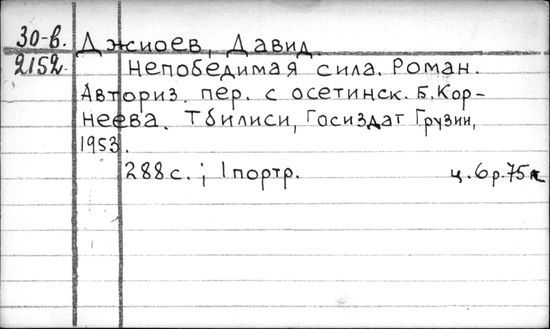 30-в. Джиоев, Давид.
2152 Непобедимая сила. Роман.
Авториз. пер. с осетинск. Б. Кор-
неева. Тбилиси, Госиздат Грузии,
1953.
288 с. ; 1 портр. ц. 6 р. 75 к